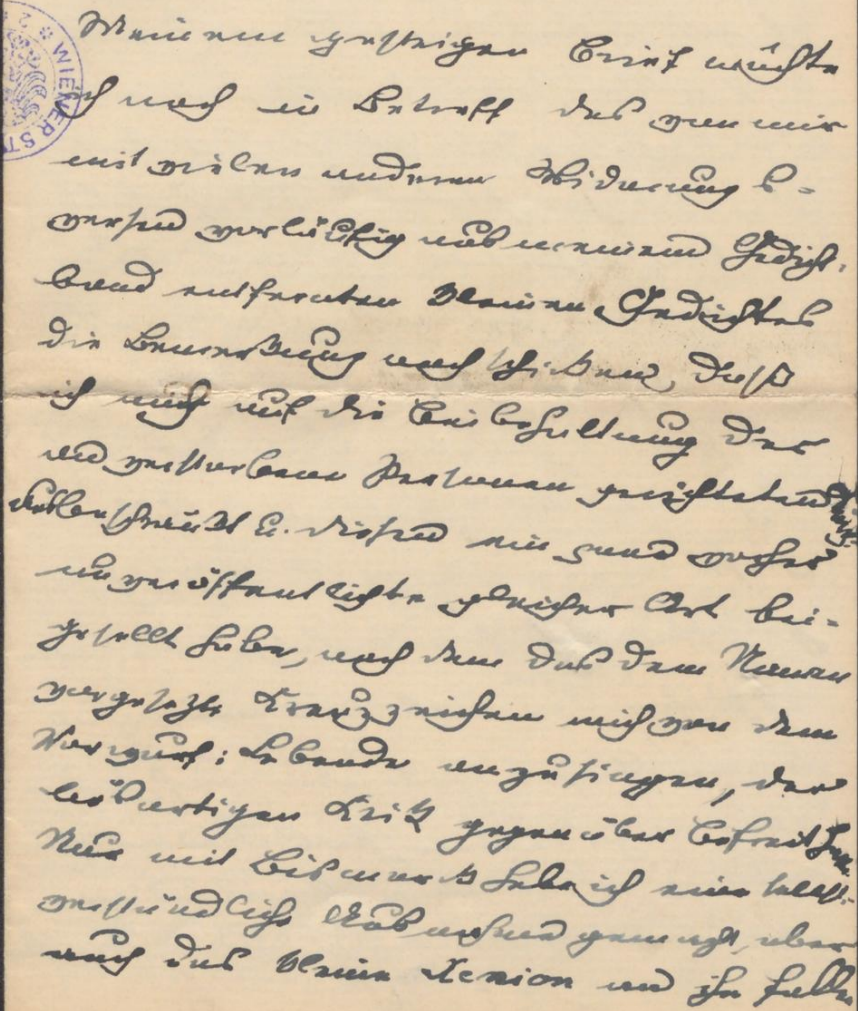 WIENER ST
Meinem gestrigen Brief möchte
ich noch in Betreff des von mir
mit vielen anderen Widmungs-
versen vorläufig aus meinem Gedicht-
band entfernten kleinen Gedichtes
die Bemerkung nach schicken, dass
ich mich auf die Beibehaltung der
an verstorbene Personen gerichteten
beschränkt u. diesen ein paar vorher
unveröffentlichte gleicher Art bei-
gesellt habe, nach dem das dem Namen
vorgesetzte Kreuzzeichen mich von dem
Vorwurf: Lebende anzusingen, der
bösartigen Kritik gegenüber befreit hat.
Nur mit Bismarck habe ich eine selbst-
verständliche Ausnahme gemacht, aber
auch das kleine Xenion an ihn